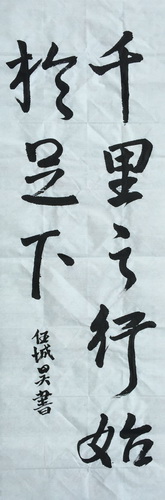 千里之行始
於足下
任城昊書